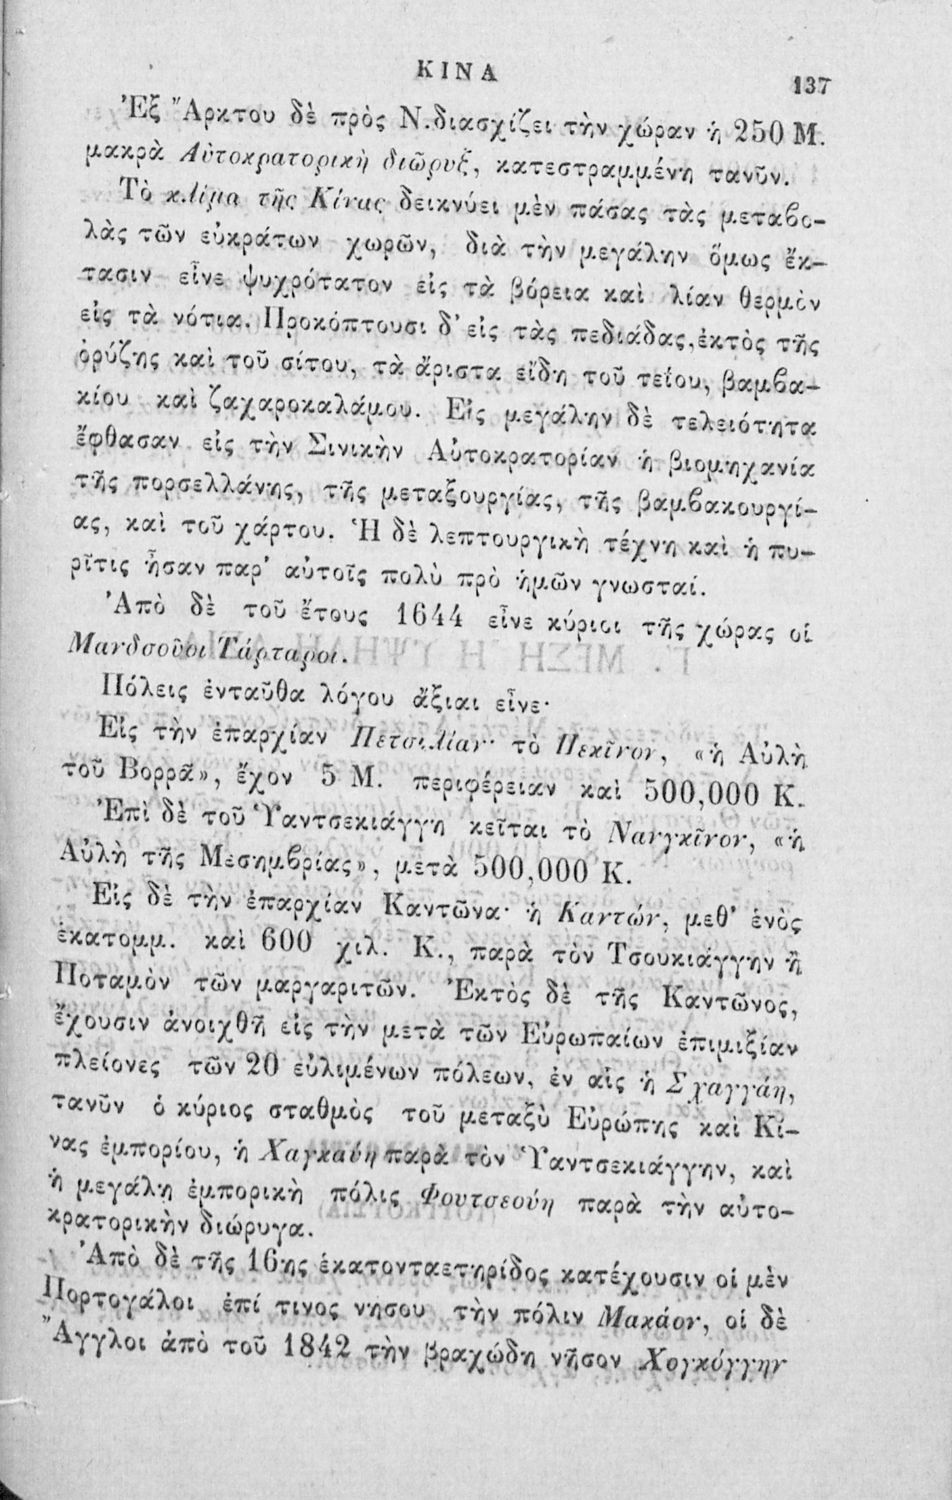 ΚΙΝΑ
137
Ἐξ Ἄρκτου δὲ πρὸς Ν. διασχίζει τὴν χώραν ἡ 250 Μ.
μακρὰ Αὐτοκρατορικὴ διῶρυξ, κατεστραμμένη τανῦν.
Τὸ κλίμα τῆς Κίνας δεικνύει μὲν πάσας τὰς μεταβο–
λὰς τῶν εὐκράτων χωρῶν, διὰ τὴν μεγάλην ὅμως ἔκ–
τασιν εἶνε ψυχρότατον εἰς τὰ βόρεια καὶ λίαν θερμὸν
εἰς τὰ νότια. Προκόπτουσι δ' εἰς τὰς πεδιάδας, ἐκτὸς τῆς
ὀρύζης καὶ τοῦ σίτου, τὰ ἄριστα εἴδη τοῦ τεΐου, βαμβα–
κίου καὶ ζαχαροκαλάμου. Εἰς μεγάλην δὲ τελειότητα
ἔφθασαν εἰς τὴν Σινικὴν Αὐτοκρατορίαν ἡ βιομηχανία
τῆς πορσελλάνης, τῆς μεταξουργίας, τῆς βαμβακουργί–
ας, καὶ τοῦ χάρτου. Ἡ δὲ λεπτουργικὴ τέχνη καὶ ἡ πυ–
ρῖτις ἦσαν παρ' αὐτοῖς πολὺ πρὸ ἡμῶν γνωσταί.
Ἀπὸ δὲ τοῦ ἔτους 1644 εἶνε κύριοι τῆς χώρας οἱ
Μανδσοῦοι Τάρταροι.
Πόλεις ἐνταῦθα λόγου ἄξιαι εἶνε·
Εἰς τὴν ἐπαρχίαν Πετσιλίαν· τὸ Πεκῖνον, «ἡ Αὐλὴ
τοῦ Βορρᾶ», ἔχον 5 Μ. περιφέρειαν καὶ 500,000 Κ.
Ἐπὶ δὲ τοῦ Ὑαντσεκιάγγη κεῖται τὸ Νανγκῖνον, «ἡ
Αὐλὴ τῆς Μεσημβρίας», μετὰ 500,000 Κ.
Εἰς δὲ τὴν ἐπαρχίαν Καντῶνα· ἡ Καντών, μεθ' ἑνὸς
ἑκατομμ. καὶ 600 χιλ. Κ., παρὰ τὸν Τσουκιάγγην ἢ
Ποταμὸν τῶν μαργαριτῶν. Ἐκτὸς δὲ τῆς Καντῶνος,
ἔχουσιν ἀνοιχθῆ εἰς τὴν μετὰ τῶν Εὐρωπαίων ἐπιμιξίαν
πλείονες τῶν 20 εὐλιμένων πόλεων, ἐν αἷς ἡ Σχαγγάη,
τανῦν ὁ κύριος σταθμὸς τοῦ μεταξὺ Εὐρώπης καὶ Κί–
νας ἐμπορίου, ἡ Χαγκαύη παρὰ τὸν Ὑαντσεκιάγγην, καὶ
ἡ μεγάλη ἐμπορικὴ πόλις Φουτσεούη παρὰ τὴν αὐτο–
κρατορικὴν διώρυγα.
Ἀπὸ δὲ τῆς 16ης ἑκατονταετηρίδος κατέχουσιν οἱ μὲν
Πορτογάλοι ἐπί τινος νησου τὴν πόλιν Μακάον, οἱ δὲ
Ἄγγλοι ἀπὸ τοῦ 1842 τὴν βραχώδη νῆσον Χογκόγγην